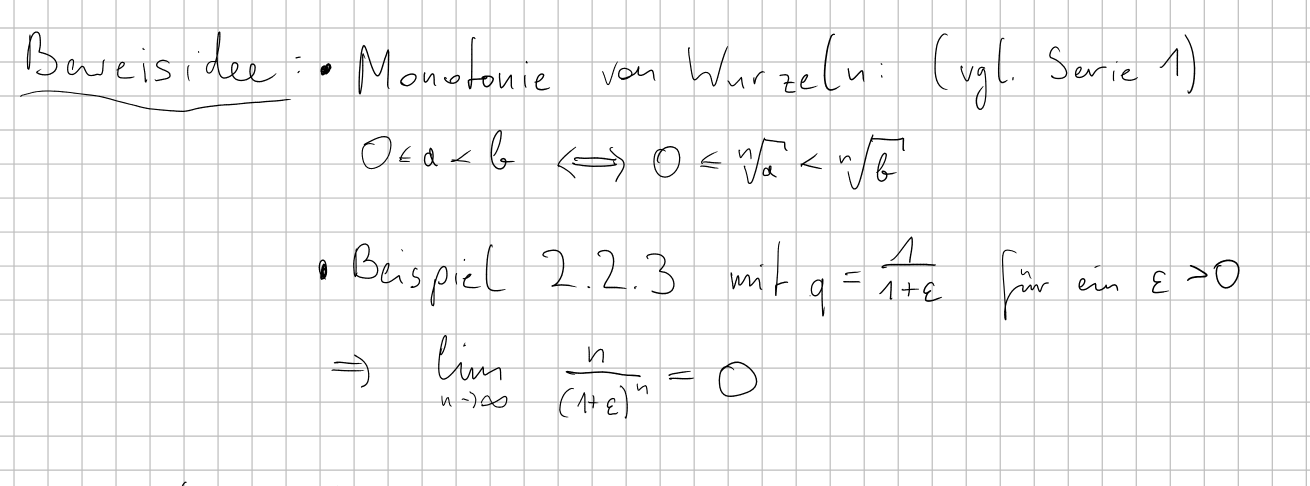 Beweisidee: • Monotonie von Wurzeln: (vgl. Serie 1)
0 ≤ a < b ⟺ 0 ≤ ⁿ√a < ⁿ√b
• Beispiel 2.2.3 mit q = 1/(1+ε) für ein ε > 0
⇒ lim n→∞ n/(1+ε)ⁿ = 0